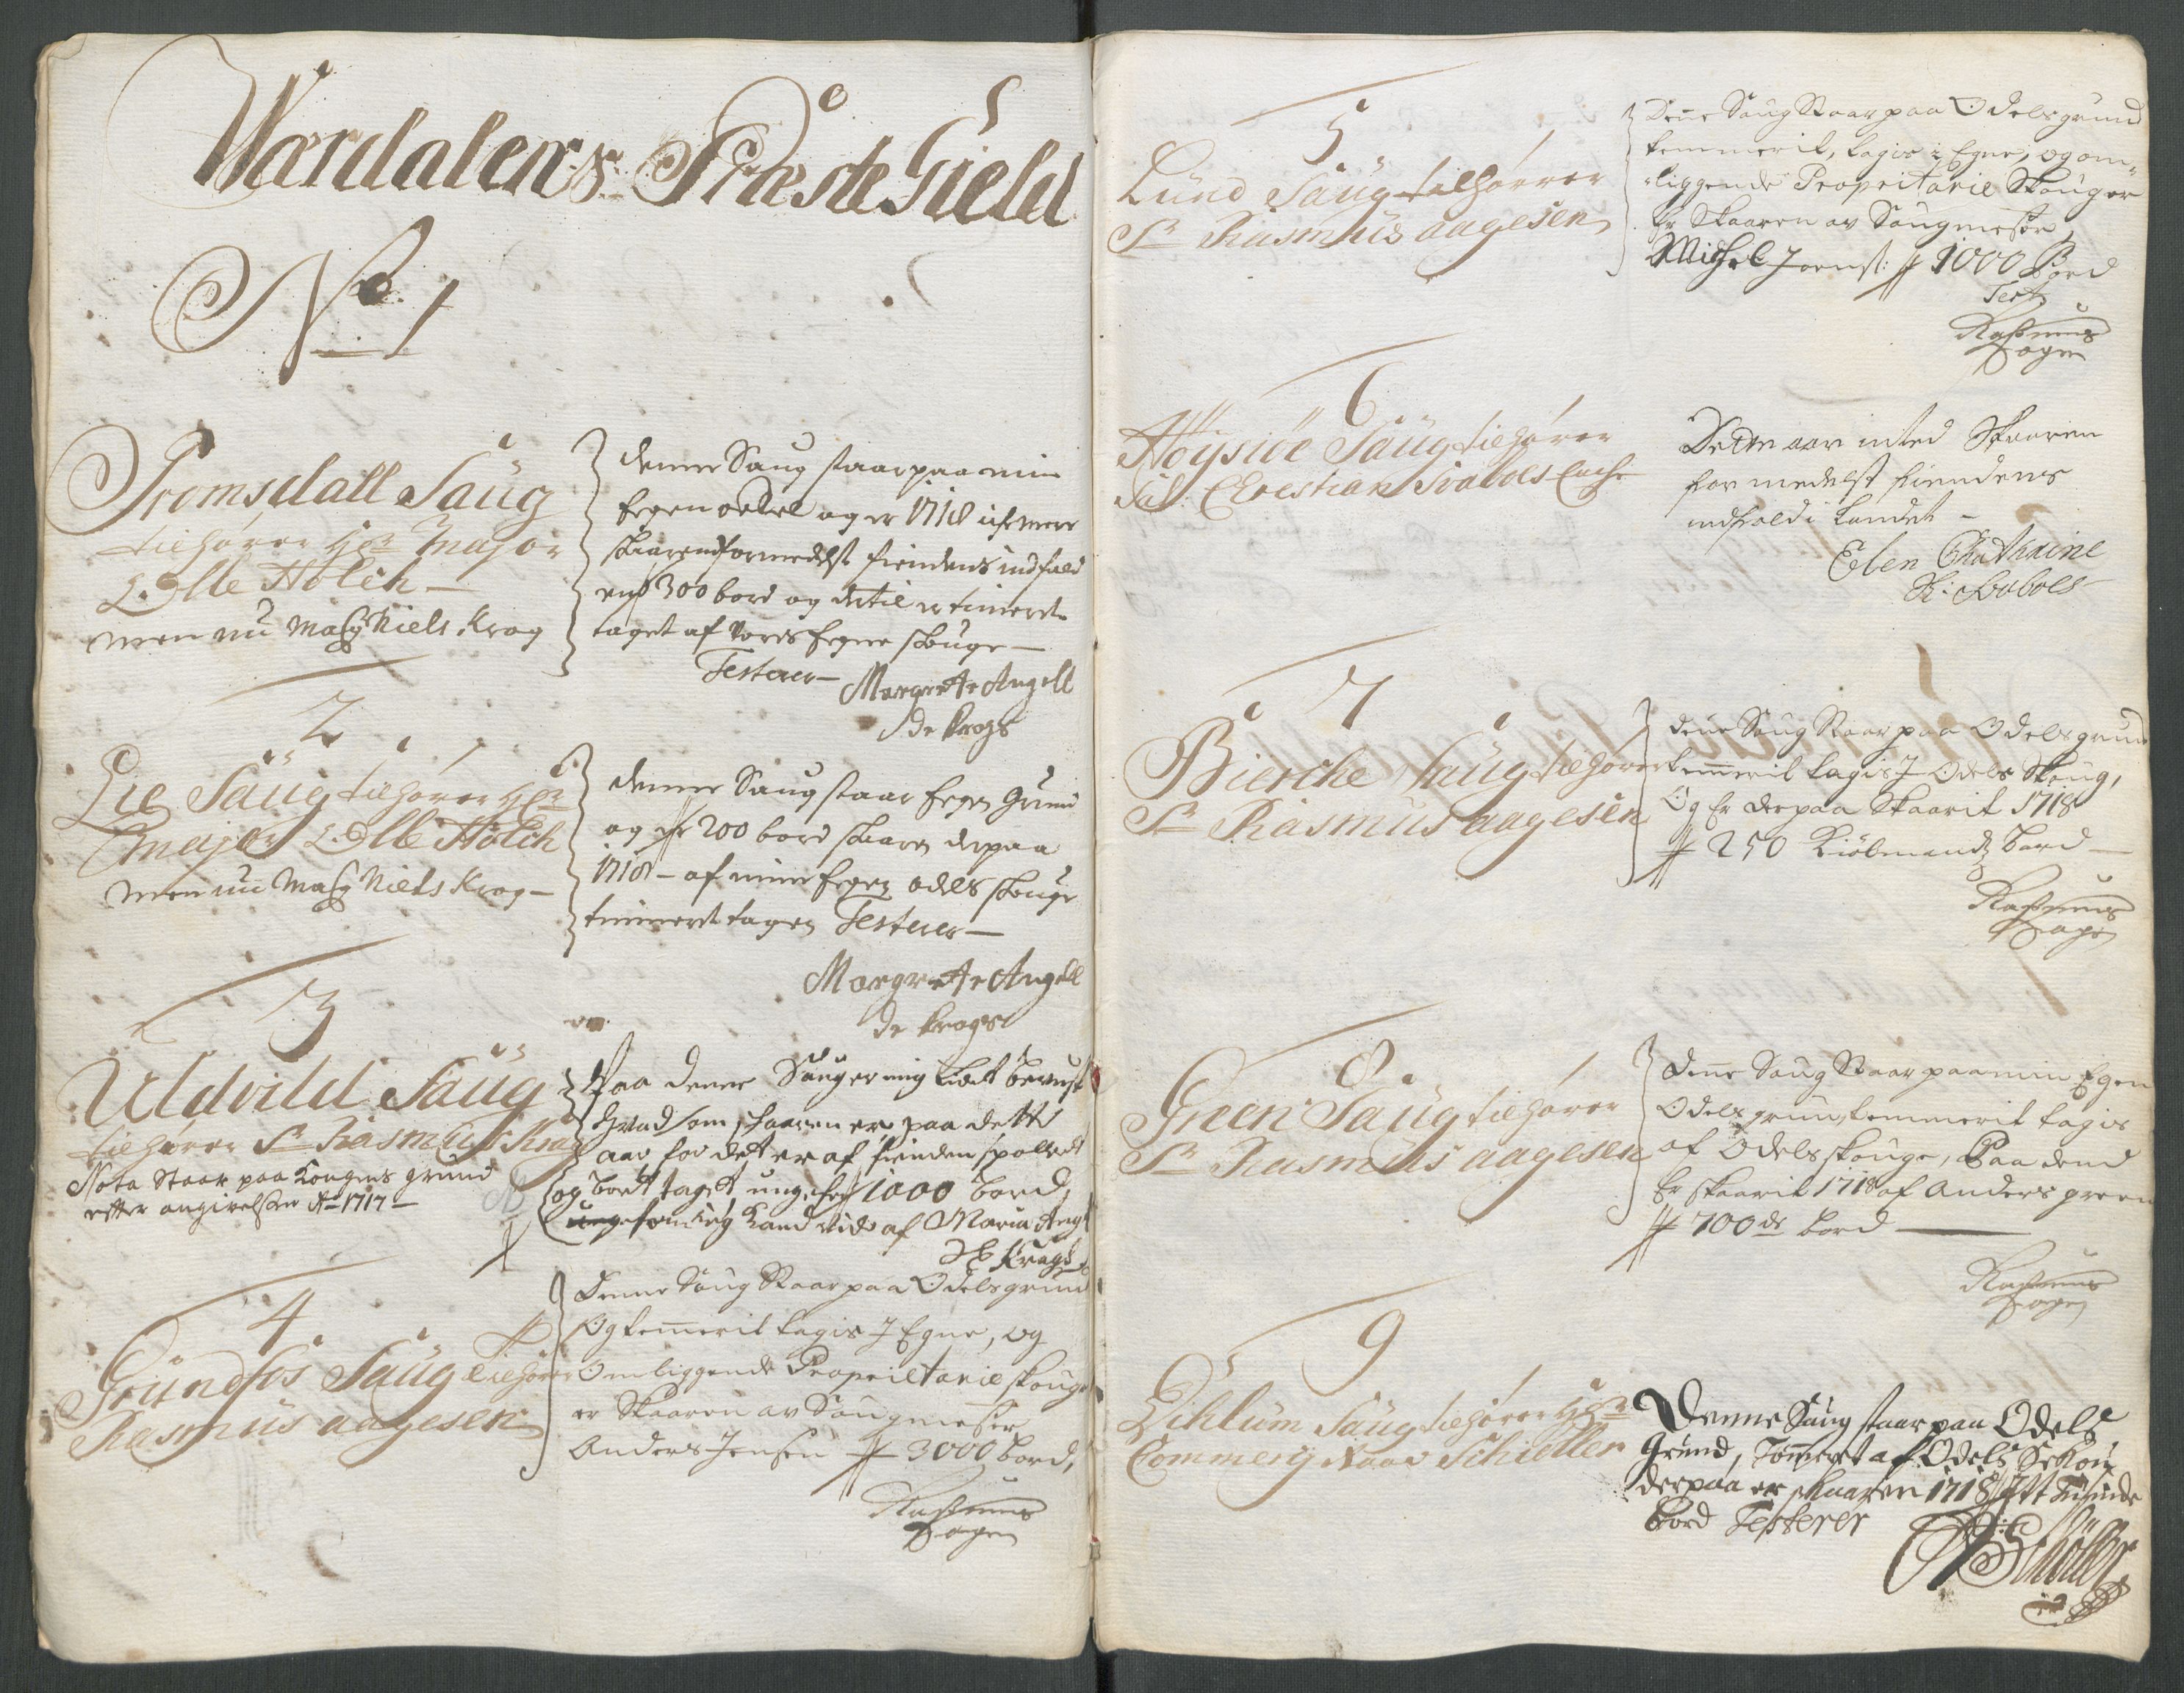 Wærdalens Præste Gield
No 1
Tromsdall Saug
tilhører Hr Major
Olle Holch
men nu Maj Niels Krog
denne Saug staar paa min
Eegen oedel og er 1718 icke mere
skaaren formedelst fiendens indfald
end 300 bord og dertil er timeret
taget af vores Eegne skouge
Testerer
Margrete Angell
Sl Krogs
2
Lie Saug tilhører Hr
Major Olle Holch
men nu Maj Niels Krog
denne Saug staar Eegen Grund
og er 200 bord skaaren derpaa
1718 af min Eegen odels skouge
timeret tagen Testerer
Margrete Angell
Sl Krogs
3
Uldvild Saug
tilhører Sr Rasmus Krag
Nota Staar paa Kongens grund
efter angivelsen Ao 1717
Paa denne Saug er mig Lidet bevust
hvad som skaaren er paa dette
aar for det er af fienden spolleret
og bort taget ungefer 1000 bord,
som ieg Kand vide af Maria Angel
Sl Krags
4
Grundfos Saug tilhører
Rasmus aagesen
Denne Saug Staar paa Odelsgrund
Og temerit tagis J Egne, og
Omliggende Proprietarie skouge
er Skaaren av Saugmester
Anders Jensen 3000 bord,
Rasmus
Aagen
5
Lund Saug tilhører
Sr Rasmus aagesen
Dene Saug Staar paa Odelsgrund
temmerit, tagis i Egne, og om
liggende Proprietarie Skouger
Er Skaaren av Saugmester
Michel Joens: 1000 Bord
Test
Rasmus
Aagen
6
Høysiøe Saug tilhører
Sal. Christian Soboles Enche
Dette aar inted Skaaren
formedelst fiendens
indfald i Landet
Elen Chatharine
Sl: Soboles
7
Bierche Saug tilhører
Sr Rasmus aagesen
dene Saug Staar paa Odelsgrund
temmerit tagis J Odels Skoug,
Og Er derpaa Skaarit 1718
250 Kiøbmands bord
Rasmus
Aagen
8
Green Saug tilhører
Sr Rasmus aagesen
Dene Saug Staar paa min Egen
Odelsgrund, temmerit tagis
af Odelsskouge, Paa dend
Er skaarit 1718 af Anders green
700de bord
Rasmus
Aagen
9
Eiklum Saug tilhører Hr
Commercj Raad Schiøller
Denne Saug staar paa Odels
Grund, Tømmeret af Odels Skou
derpaa er skaaren 1718 Itt Tusinde
Bord Testerer
Schøller